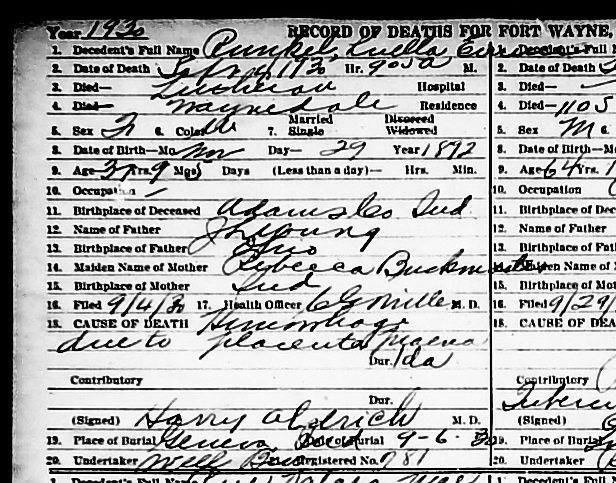 Year 1930 RECORD OF DEATHS FOR FORT WAYNE,
1. Decedent's Full Name Runkel, Luella 1. Decedent's Full
2. Date of Death 1930 Hr. 905a M. 2. Date of Death
3. Died— Lutheran Hospital 3. Died—
4. Died— Waynedale Residence 4. Died—1105
Married Divorced
5. Sex F 6. Color W 7. Single Widowed 5. Sex M 6.
8. Date of Birth—Mo. Nov Day— 29 Year 1892 8. Date of Birth—Mo
9. Age 37 Yrs. 9 Mos 5 Days (Less than a day)— Hrs. Min. 9. Age 64 Yrs.
10. Occupation — 10. Occupation
11. Birthplace of Deceased Adams Co Ind 11. Birthplace of Dec
12. Name of Father Young 12. Name of Father
13. Birthplace of Father Ohio 13. Birthplace of Fat
14. Maiden Name of Mother Rebecca Buckmaster Maiden Name of
15. Birthplace of Mother Ind 15. Birthplace of Mot
16. Filed 9/4/30 17. Health Officer M. D. 16. Filed 9/29/
18. CAUSE OF DEATH Hemorrhage 18. CAUSE OF DEA
due to placenta
Dur. 1 da
Contributory Contributory
Dur.
(Signed) Harry Aldrich M. D. (Signed)
19. Place of Burial Geneva Date of Burial 9-6-30 19. Place of Buria
20. Undertaker Registered No. 781 20. Undertaker
1. Decedent's Full Name 1. Decedent's Full